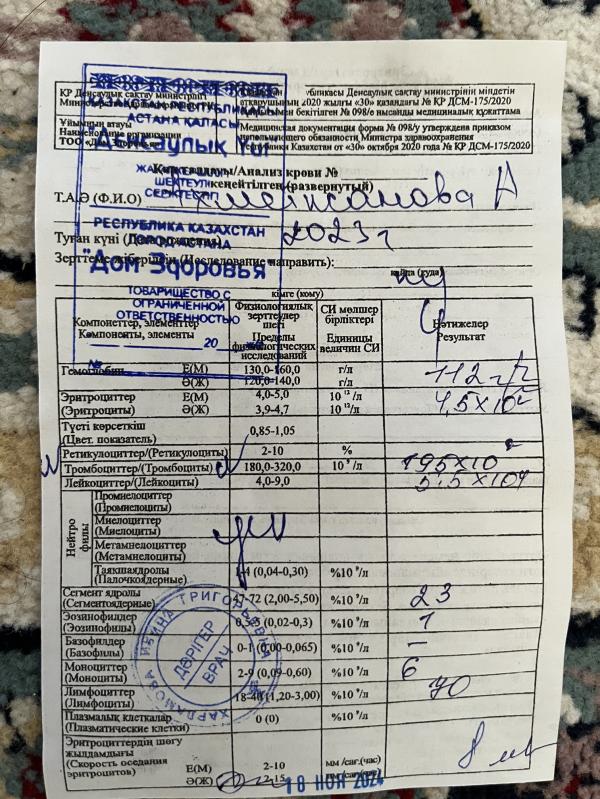 ҚР Денсаулық сақтау министрлігі
Қазақстан Республикасы Денсаулық сақтау министрінің міндетін
атқарушының 2020 жылғы «30» қазандағы № ҚР ДСМ-175/2020
бұйрығымен бекітілген № 098/е нысанды медициналық құжаттама
Ұйымның атауы
Наименование организации
ТОО «Дом Здоровья»
Медицинская документация форма № 098/у утверждена приказом
исполняющего обязанности Министра здравоохранения
Республики Казахстан от «30» октября 2020 года № ҚР ДСМ-175/2020
ҚАЗАҚСТАН РЕСПУБЛИКАСЫ
АСТАНА ҚАЛАСЫ
Денсаулық Үйі
ШЕКТЕУЛІ
СЕРІКТЕСТІГІ
РЕСПУБЛИКА КАЗАХСТАН
ГОРОД АСТАНА
"Дом Здоровья"
ТОВАРИЩЕСТВО С
ОГРАНИЧЕННОЙ
ОТВЕТСТВЕННОСТЬЮ
№ 20
/Анализ крови №
кеңейтілген (развернутый)
Т.А.Ә (Ф.И.О)
Туған күні 2023г
Зерттеме жіберілді (Исследование направить):
қайда (куда)
кімге (кому)
Компоненттер, элементтер
Компоненты, элементы
Физиологиялық
зерттеулер
шегі
Пределы
физиологических
исследований
СИ мөлшер
бірліктері
Единицы
величин СИ
Нәтижелер
Результат
Гемоглобин Е(М) 130,0-160,0 г/л 112 г/л
Ә(Ж) 120,0-140,0 г/л
Эритроциттер Е(М) 4,0-5,0 10 ¹²/л 4,5x10¹²
(Эритроциты) Ә(Ж) 3,9-4,7 10 ¹²/л
Түсті көрсеткіш
(Цвет. показатель) 0,85-1,05
Ретикулоциттер/(Ретикулоциты) 2-10 %
Тромбоциттер/(Тромбоциты) 180,0-320,0 10 ⁹/л 195x10⁹
Лейкоциттер/(Лейкоциты) 4,0-9,0 5.5x10⁹/л
Нейтро
филы
Промиелоциттер
(Промиелоциты)
Миелоциттер
(Миелоциты)
Метамиелоциттер
(Метамиелоциты)
Таяқшаядролы
(Палочкоядерные) 1-4 (0,04-0,30) %10 ⁹/л
Сегмент ядролы
(Сегментоядерные) 47-72 (2,00-5,50) %10 ⁹/л 23
Эозинофилдер
(Эозинофилы) 0,5-5 (0,02-0,3) %10 ⁹/л 1
Базофилдер
(Базофилы) 0-1 (0,00-0,065) %10 ⁹/л –
Моноциттер
(Моноциты) 2-9 (0,09-0,60) %10 ⁹/л 6
Лимфоциттер
(Лимфоциты) 18-40 (1,20-3,00) %10 ⁹/л 70
Плазмалық клеткалар
(Плазматические клетки) 0 (0) %10 ⁹/л
Эритроциттердің шөгу
жылдамдығы
(Скорость оседания
эритроцитов) Е(М) 2-10 мм /сағ.(час) 8 мм
Ә(Ж) 2-15 мм/сағ.(час)
ХАРЛАМОВА ИРИНА ГРИГОРЬЕВНА
ДӘРІГЕР
ВРАЧ
18 НОЯ 2024